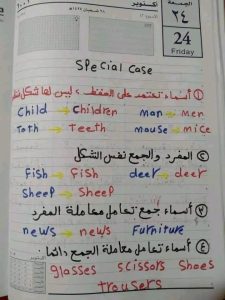 أكتوبر
الجمعة
٢٤
24
Friday
SPecial case
① أسماء تعتمد على الحفظ، ليس لها شكل
Child → Children man → men
Toth → Teeth mouse → mice
② المفرد والجمع نفس الشكل
Fish → Fish deer → deer
Sheep → Sheep
٣ أسماء جمع تعامل معاملة المفرد
news → news Furniture
٤ أسماء تعامل معاملة الجمع دائما
glasses scissors Shoes
trousers